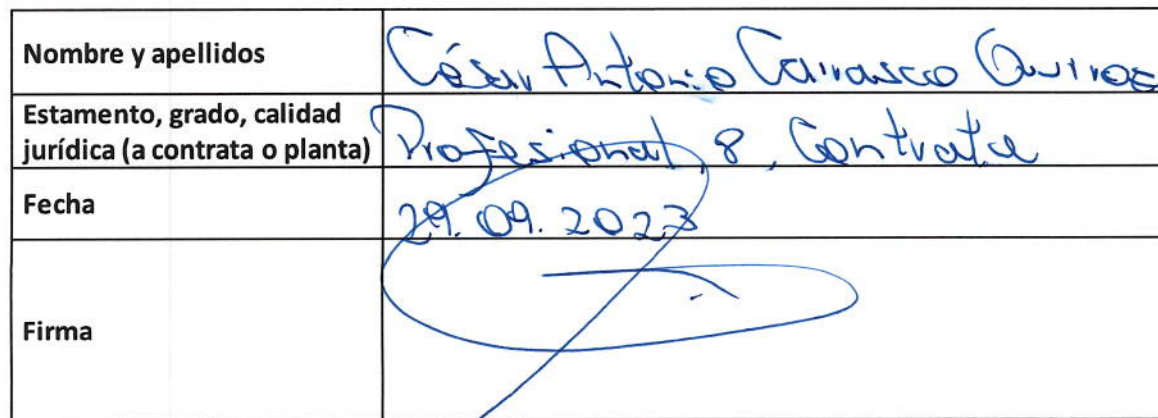 Nombre y apellidos
César Antonio Carrasco Quiroz
Estamento, grado, calidad
jurídica (a contrata o planta)
Profesional, 8, Contrata
Fecha
29.09.2023
Firma